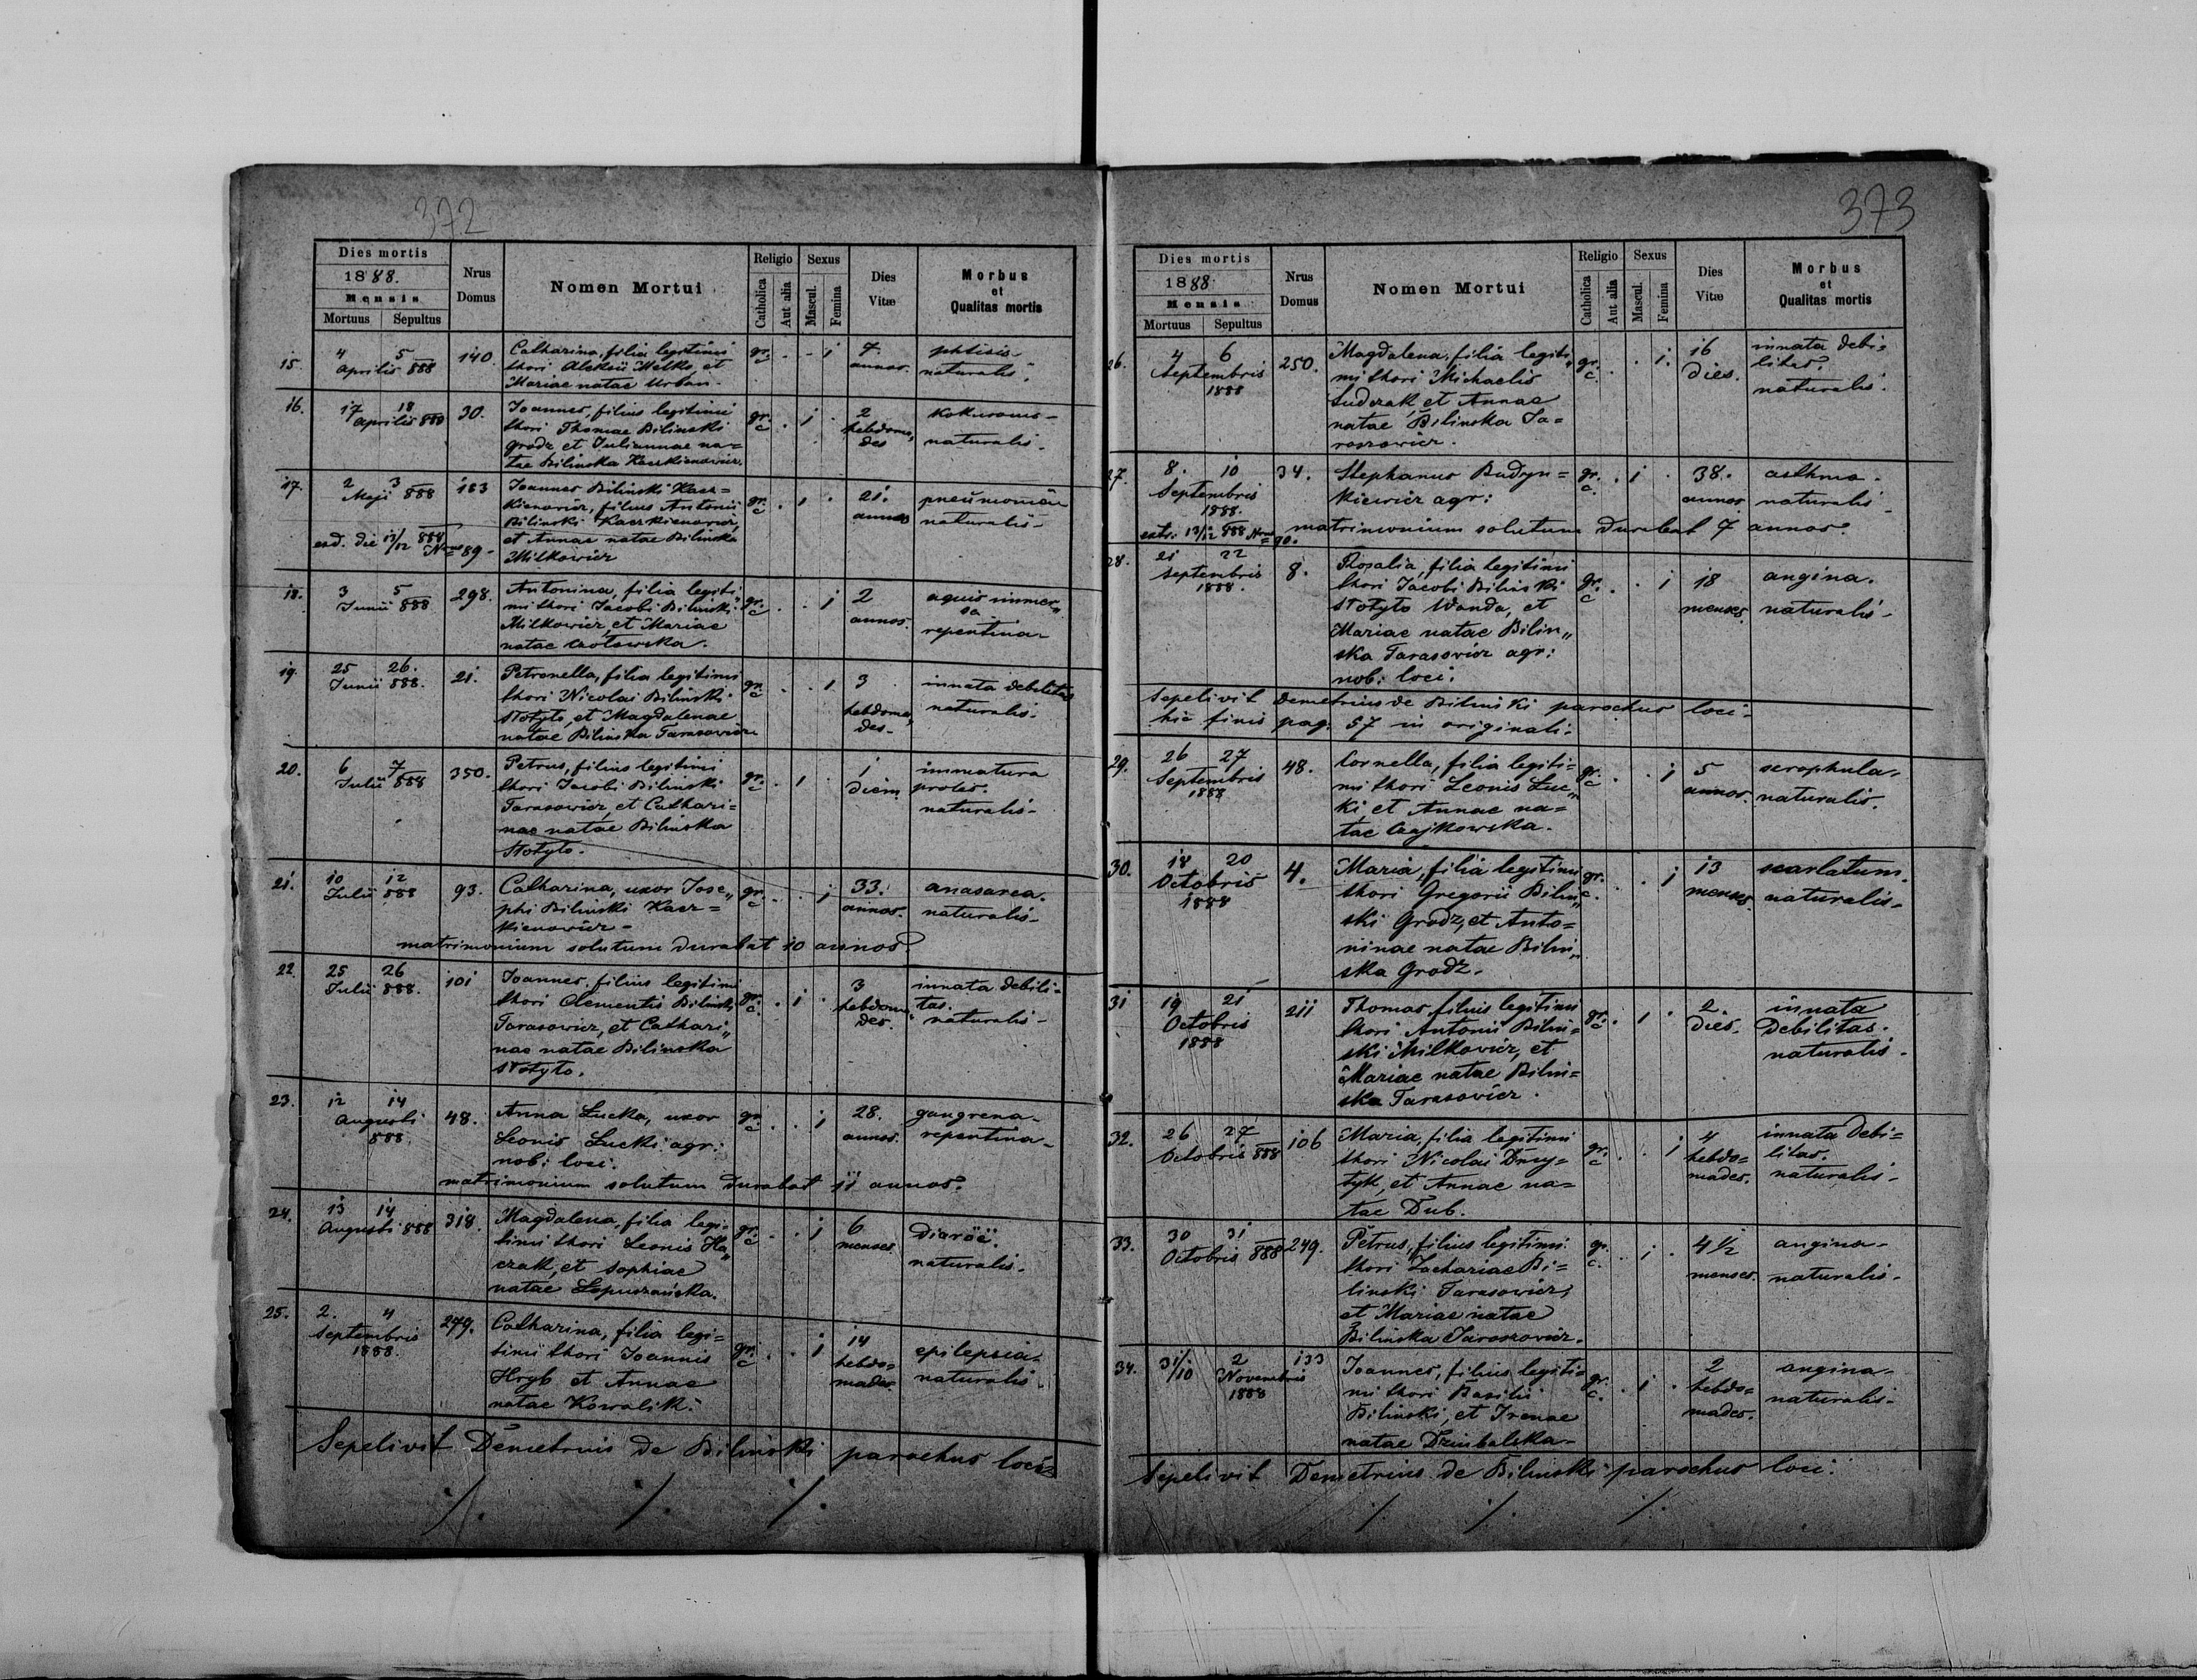 372
Dies mortis
1888.
Mensis
Mortuus Sepultus
Nrus Domus
Nomen Mortui
Religio
Catholica Aut alia
Sexus
Mascul. Femina
Dies Vitæ
Morbus et Qualitas mortis
15. 4 5 140. Catharina, filia legitimi gr. . - i 7. phtisis
Aprilis 888 thori Aleksii Melko, et c annos. naturalis.
Mariae natae Urban.
16. 17 18 30. Joannes, filius legitimi gr. . i . 2 kokurows-
Aprilis 888 thori Thomae Bilinski c hebdoma„ naturalis.
grodz, et Juliannae na= des
tae Bilinska Kaczkienowicz.
17. 2 3 183 Joannes Bilinski Kacz= gr. . i . 21. pneumonia
Maji 888 kienowicz, filius Antonii c annos naturalis-
Bilinski Kaczkienowicz,
exd. die 13/12 888 Nrus 89- et Annae natae Bilinska
Milkowicz
18. 3 5 298. Antonina, filia legiti„ gr. . . i 2 aquis immer„
Junii 888 mi thori Jacobi Bilinski c annos. sa
Milkowicz, et Mariae repentina-
natae Czotowska.
19. 25 26. 21. Petronella, filia legitimi gr. . . i 3 innata debilitas
Junii 888. thori Nicolai Bilinski c hebdoma„ naturalis.
Stotyto, et Magdalenae des-
natae Bilinska Tarasowicz
20. 6 7 350. Petrus, filius legitimi gr. . i . 1 immatura
Julii 888 thori Jacobi Bilinski c diem proles.
Tarasowicz, et Cathari= naturalis-
nae natae Bilinska
Stotyto.
21. 10 12 93. Catharina, uxor Jose„ gr. . . i 33. anasarca.
Julii 888 phi Bilinski Kacz= c annos. naturalis-
kienowicz-
matrimonium solutum durabat 10 annos.
22. 25 26 101 Joannes, filius legitimi gr. . i . 3 innata debili-
Julii 888. thori Clementis Bilinski c. hebdoma„ tas.
Tarasowicz, et Cathari„ des. naturalis-
nae natae Bilinska
Stotyto.
23. 12 14 48. Anna Lucka, uxor gr. . . i 28. gangrena-
Augusti Leonis Lucki agr: c annos. repentina-
888. nob: loci.
matrimonium solutum durabat 11 annos.
24. 13 14 318. Magdalena, filia legi- gr. . . i 6 diaröë.
Augusti 888 timi thori Leonis Ha„ c menses. naturalis.
czak, et Sophiae
natae Lopuszańska.
25. 2. 4 279. Catharina, filia legi= gr. . . i 14 epilepsia-
Septembris timi thori Joannis c hebdo= naturalis.
1888. Hryb et Annae mades.
natae Kowalik.
Sepelivit Demetrius de Bilinski parochus loci.
./. ./. ./.
373
Dies mortis
1888.
Mensis
Mortuus Sepultus
Nrus Domus
Nomen Mortui
Religio
Catholica Aut alia
Sexus
Mascul. Femina
Dies Vitæ
Morbus et Qualitas mortis
26. 4 6 250. Magdalena, filia legiti„ gr. . . i. 16 innata debi=
Septembris mi thori Michaelis c dies. litas.
1888 Ludczak et Annae naturalis.
natae Bilinska Ja=
roszowicz.
27. 8. 10 34. Stephanus Budzyn= gr. . i . 38. asthma.
Septembris kiewicz agr: c. annos naturalis-
1888.
extr. 13/12 888 Nrus 90. matrimonium solutum durabat 7 annos.
28. 21 22 8. Rosalia, filia legitimi gr. . . i 18 angina.
Septembris thori Jacobi Bilinski c menses. naturalis-
1888. Stotyto Wanda, et
Mariae natae Bilin„
ska Tarasowicz agr:
nob: loci.
Sepelivit Demetrius de Bilinski parochus loci.
hic finis pag. 57 in originali.
29. 26 27 48. Cornella, filia legiti= gr. . . i 5 scrophula.
Septembris mi thori Leonis Luc„ c annos. naturalis.
1888 ki, et Annae na=
tae Czajkowska.
30. 18 20 4. Maria, filia legitimi gr. . . i 13 scarlatum.
Octobris thori Gregorii Bilin„ c. menses. naturalis-
1888 ski Grodz, et Anto=
ninae natae Bilin„
ska Grodz.
31 19 21 211 Thomas, filius legitimi gr. . i . 2. innata
Octobris thori Antonii Bilin= c dies. debilitas.
1888 ski Milkowicz, et naturalis-
Mariae natae Bilin=
ska Tarasowicz.
32. 26 27 106 Maria, filia legitimi gr. . . i 4 innata debi=
Octobris 888 thori Nicolai Dmy= c hebdo= litas.
tyk, et Annae na= mades. naturalis-
tae Dub.
33. 30 31 249. Petrus, filius legitimi gr. . i . 4 1/2 angina-
Octobris 888 thori Zachariae Bi= c. menses. naturalis-
linski Tarasowicz,
et Mariae natae
Bilinska Jaroszowicz.
34. 31/10 2 133 Joannes, filius legiti= gr. . i . 2 angina-
Novembris mi thori Basilii c. hebdo= naturalis-
1888 Bilinski, et Irenae mades.
natae Dzimbalska-
Sepelivit Demetrius de Bilinski parochus loci.
./. ./. ./.